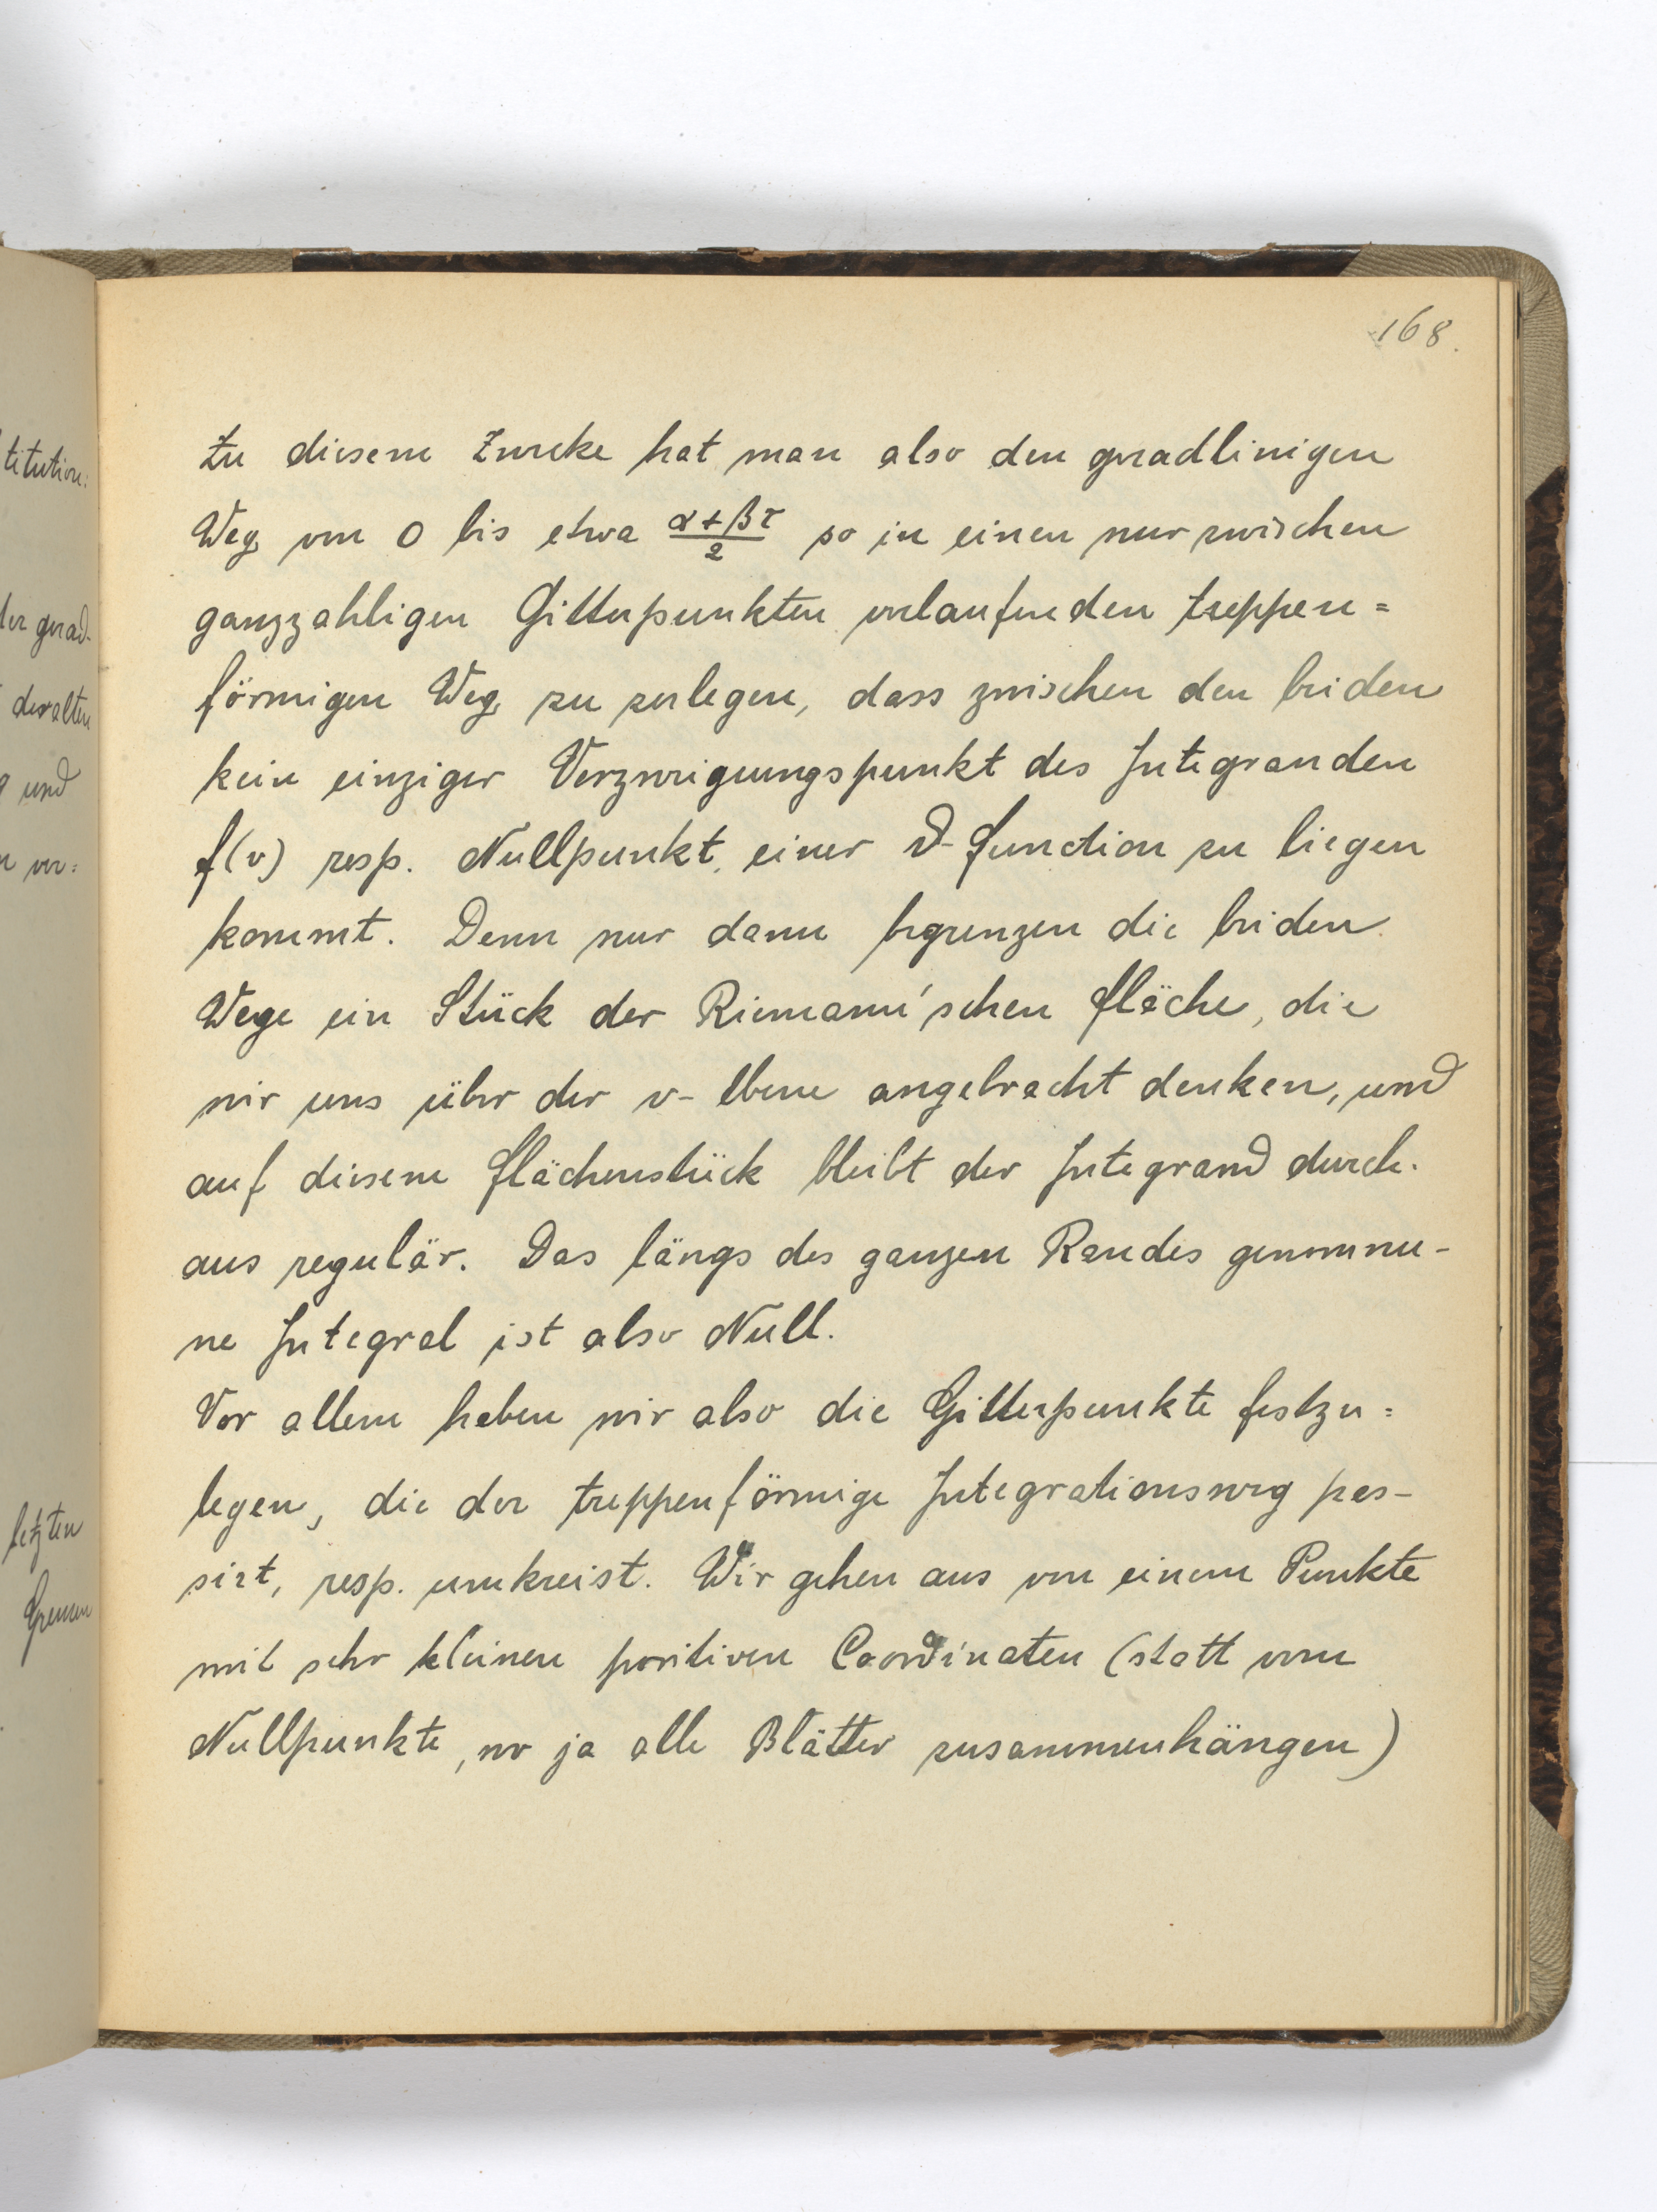 168.
Zu diesem Zwecke hat man also den geradlinigen
Weg von 0 bis etwa (α+βτ)/2 so in einen nur zwischen
ganzzahligen Gitterpunkten verlaufenden treppen=
förmigen Weg zu zerlegen, dass zwischen den beiden
kein einziger Verzweigungspunkt des Integranden
f(v) resp. Nullpunkt einer ϑ-Function zu liegen
kommt. Denn nur dann begrenzen die beiden
Wege ein Stück der Riemann'schen Fläche, die
wir uns über der v-Ebene angebracht denken, und
auf diesem Flächenstück bleibt der Integrand durch-
aus regulär. Das längs des ganzen Randes genomme-
ne Integral ist also Null.
Vor allem haben wir also die Gitterpunkte festzu=
legen, die der treppenförmige Integrationsweg pas-
sirt, resp. umkreist. Wir gehen aus von einem Punkte
mit sehr kleinen positiven Coordinaten (statt vom
Nullpunkte, wo ja alle Blätter zusammenhängen)
titution:
der grad-
der alten
und
ver=
letzten